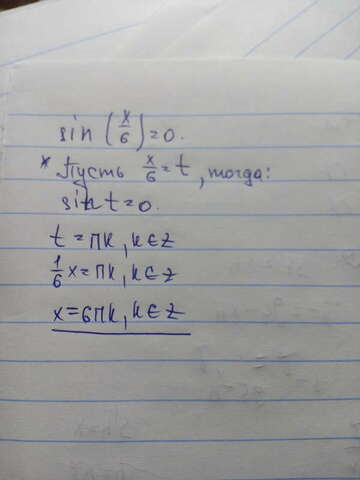 sin (x/6) = 0.
* Пусть x/6 = t, тогда:
sin t = 0.
t = πk, k ∈ Z
1/6 x = πk, k ∈ Z
x = 6πk, k ∈ Z